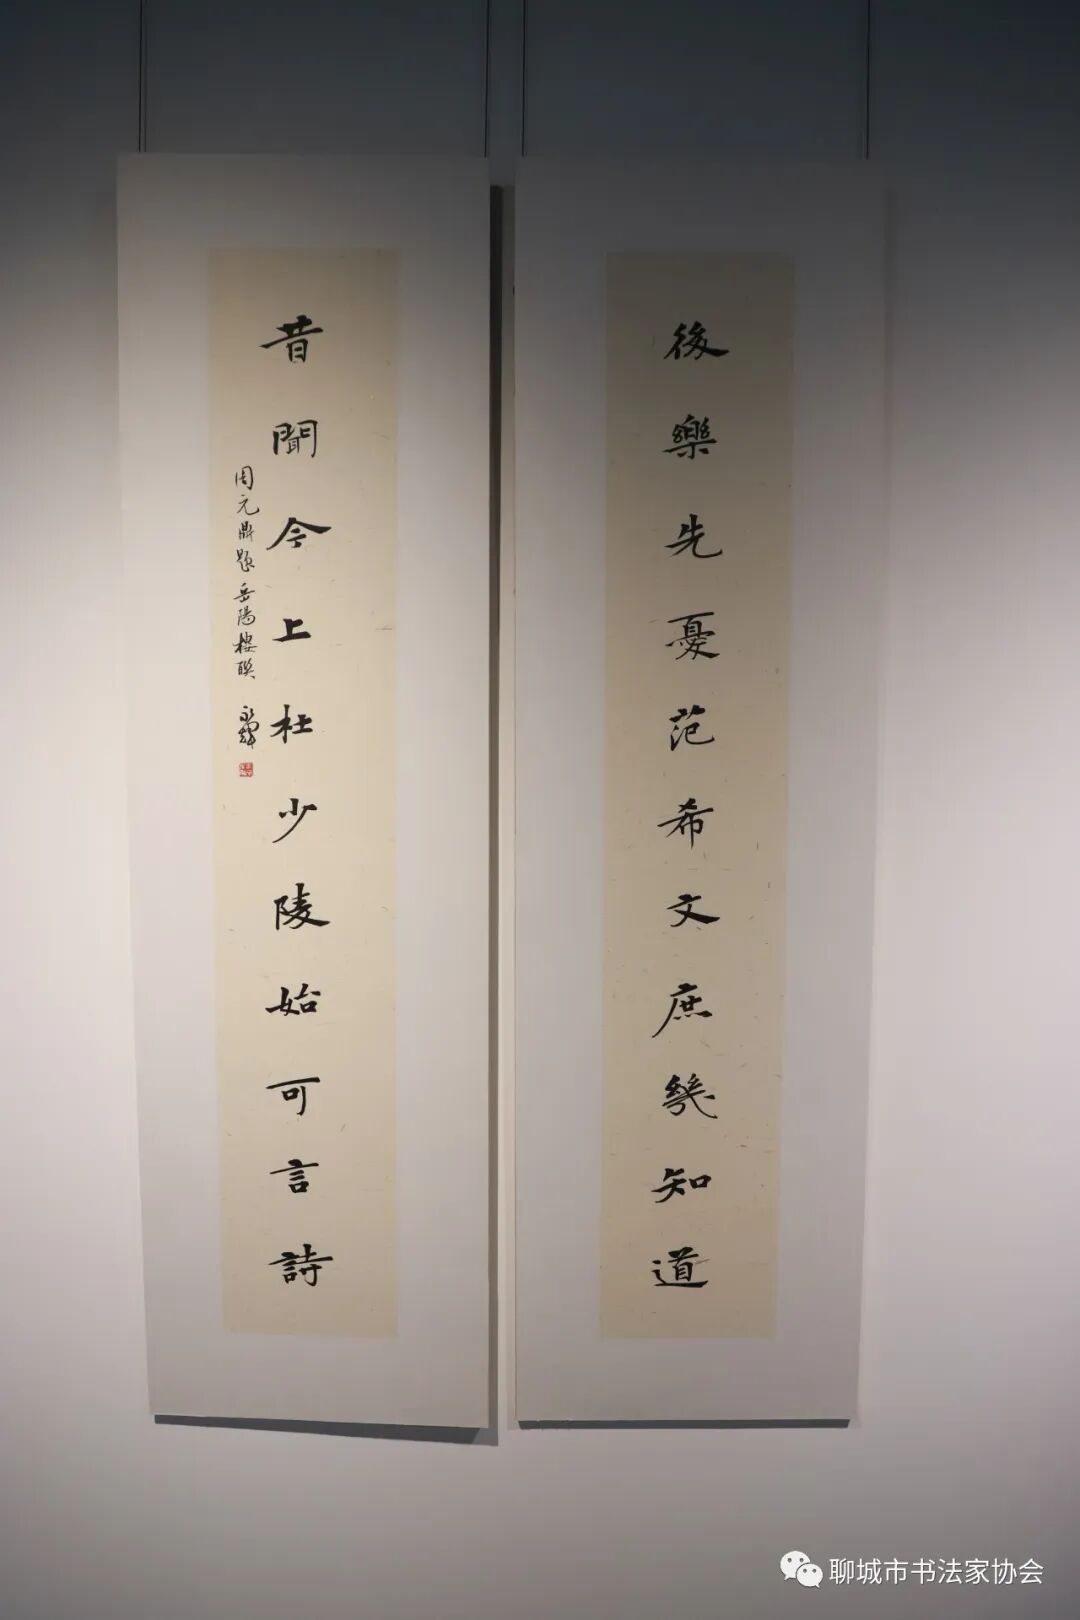 後樂先憂范希文庶幾知道
昔聞今上杜少陵始可言詩
周元鼎題岳陽樓聯
聊城市书法家协会